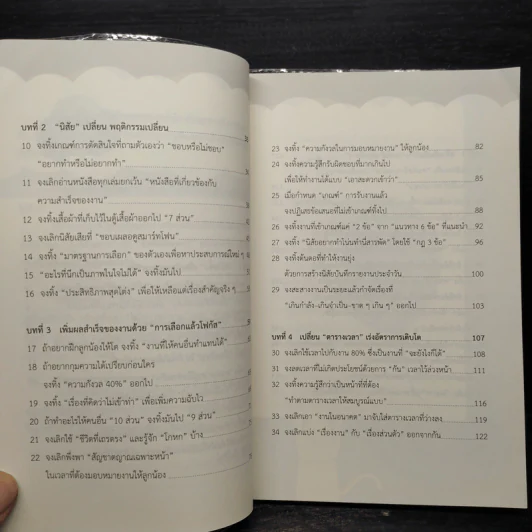 บทที่ 2 "นิสัย" เปลี่ยน พฤติกรรมเปลี่ยน
10 จงทิ้งเกณฑ์การตัดสินใจที่ถามตัวเองว่า "ชอบหรือไม่ชอบ"
"อยากทำหรือไม่อยากทำ"
11 จงเลิกอ่านหนังสือทุกเล่มยกเว้น "หนังสือที่เกี่ยวข้องกับ
ความสำเร็จของงาน"
12 จงทิ้งเสื้อผ้าที่เก็บไว้ในตู้เสื้อผ้าออกไป "7 ส่วน"
13 จงเลิกนิสัยเสียที่ "ชอบเผลอดูสมาร์ทโฟน"
14 จงทิ้ง "มาตรฐานการเลือก" ของตัวเองเพื่อหาประสบการณ์ใหม่ ๆ
15 "อะไรที่นึกเป็นภาพในใจไม่ได้" จงทิ้งมันไป
16 จงทิ้ง "ประสิทธิภาพสุดโต่ง" เพื่อให้เหลือแต่เรื่องสำคัญจริง ๆ
บทที่ 3 เพิ่มผลสำเร็จของงานด้วย "การเลือกแล้วโฟกัส"
17 ถ้าอยากฝึกลูกน้องให้โต จงทิ้ง "งานที่ให้คนอื่นทำแทนได้"
18 ถ้าอยากกุมความได้เปรียบก่อนใคร
จงทิ้ง "ความกังวล 40%" ออกไป
19 จงทิ้ง "เรื่องที่คิดว่าไม่เข้าท่า" เพื่อเพิ่มความฉับไว
20 ถ้าทำอะไรให้คนอื่น "10 ส่วน" จงทิ้งมันไป "9 ส่วน"
21 จงเลิกใช้ "ชีวิตที่เถรตรง" และรู้จัก "โกหก" บ้าง
22 จงเลิกพึ่งพา "สัญชาตญาณเฉพาะหน้า"
ในเวลาที่ต้องมอบหมายงานให้ลูกน้อง
23 จงทิ้ง "ความกังวลในการมอบหมายงาน" ให้ลูกน้อง 82
24 จงทิ้งความรู้สึกรับผิดชอบที่มากเกินไป
เพื่อให้ทำงานได้แบบ "เอาสะดวกเข้าว่า" 85
25 เมื่อกำหนด "เกณฑ์" การรับงานแล้ว
จงปฏิเสธข้อเสนอที่ไม่เข้าเกณฑ์ทิ้งไป 88
26 จงทิ้งงานที่เข้าเกณฑ์แค่ "2 ข้อ" จาก "แนวทาง 6 ข้อ" ที่แนะนำ 92
27 จงทิ้ง "นิสัยอยากทำโน่นทำนี่สารพัด" โดยใช้ "กฎ 3 ข้อ" 96
28 จงทิ้งต้นตอที่ทำให้งานยุ่ง
ด้วยการสร้างนิสัยบันทึกรายงานประจำวัน 100
29 จงสะสางงานเป็นระยะแล้วกำจัดเรื่องที่
"เกินกำลัง-เกินจำเป็น-ขาด ๆ เกิน ๆ" ออกไป 103
บทที่ 4 เปลี่ยน "ตารางเวลา" เร่งอัตราการเติบโต 107
30 จงเลิกใช้เวลาไปกับงาน 80% ซึ่งเป็นงานที่ "จะยังไงก็ได้" 108
31 จงลดเวลาที่ไม่เกิดประโยชน์ด้วยการ "กัน" เวลาไว้ล่วงหน้า 111
32 จงทิ้งความรู้สึกว่าเป็นหน้าที่ที่ต้อง
"ทำตามตารางเวลาให้สมบูรณ์แบบ" 116
33 จงเลิกเอา "งานในอนาคต" มาจับใส่ตารางเวลาที่ว่างลง 119
34 จงเลิกแบ่ง "เรื่องงาน" กับ "เรื่องส่วนตัว" ออกจากกัน 122